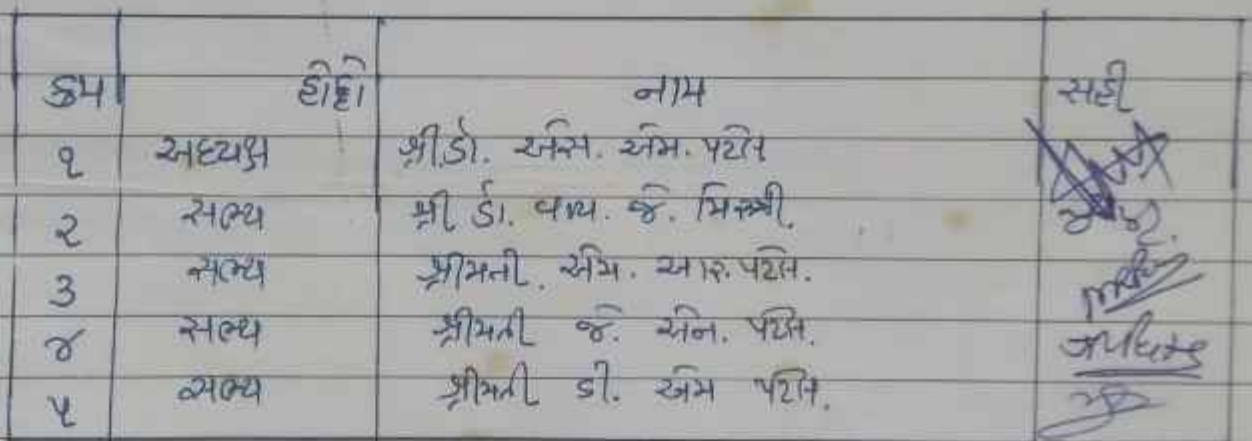 ક્રમ હોદ્દો નામ સહી
૧ અધ્યક્ષ શ્રી.ડો. એસ. એમ. પટેલ
૨ સભ્ય શ્રી ડૉ. વાય. જે. મિસ્ત્રી.
૩ સભ્ય શ્રીમતી. એમ. આર. પટેલ.
૪ સભ્ય શ્રીમતી જે. એન. પટેલ.
૫ સભ્ય શ્રીમતી ડી. એમ પટેલ.